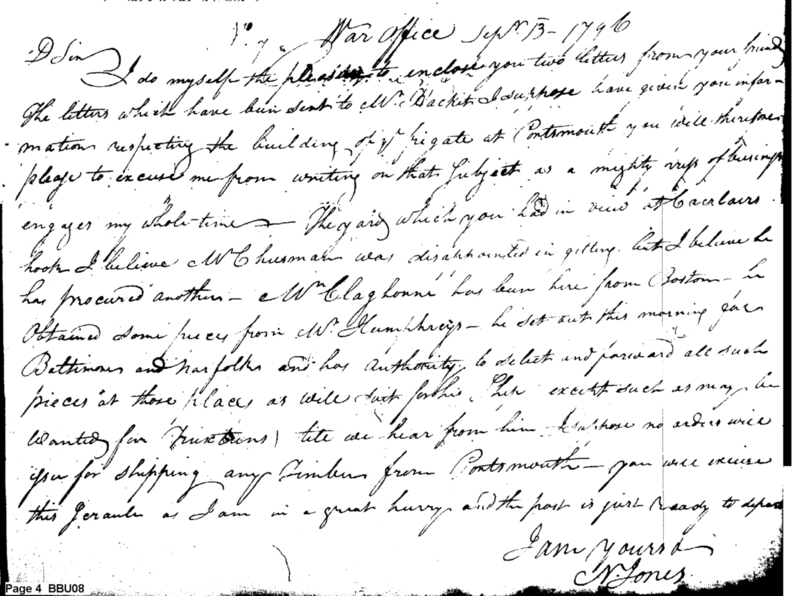 War Office Sepr. 13 - 1796
D Sir
I do myself the pleasure to enclose you two letters from your friend
The letters which have been sent to Mr. Hackit I suppose have given you infor-
mation respecting the building of ye frigate at Portsmouth you will therefore
please to excuse me from writing on that Subject as a mighty press of business
engages my whole time - The yard which you had in view at Caerlairs
hook I believe Mr Chusman was disappointed in getting but I believe he
has procured another - Mr. Claghorne has been here from Boston - he
obtained some pieces from Mr. Humphreys - he set out this morning for
Baltimore and Norfolk and has authority to select and forward all such
pieces at those places as will suit for his Ship except such as may be
wanted for Truxtuns) till we hear from him I suppose no orders will
issue for shipping any Timber from Portsmouth - you will excuse
this Scrawle as I am in a great hurry and the post is just ready to depart
I am yours
N Jones
Page 4 BBU08